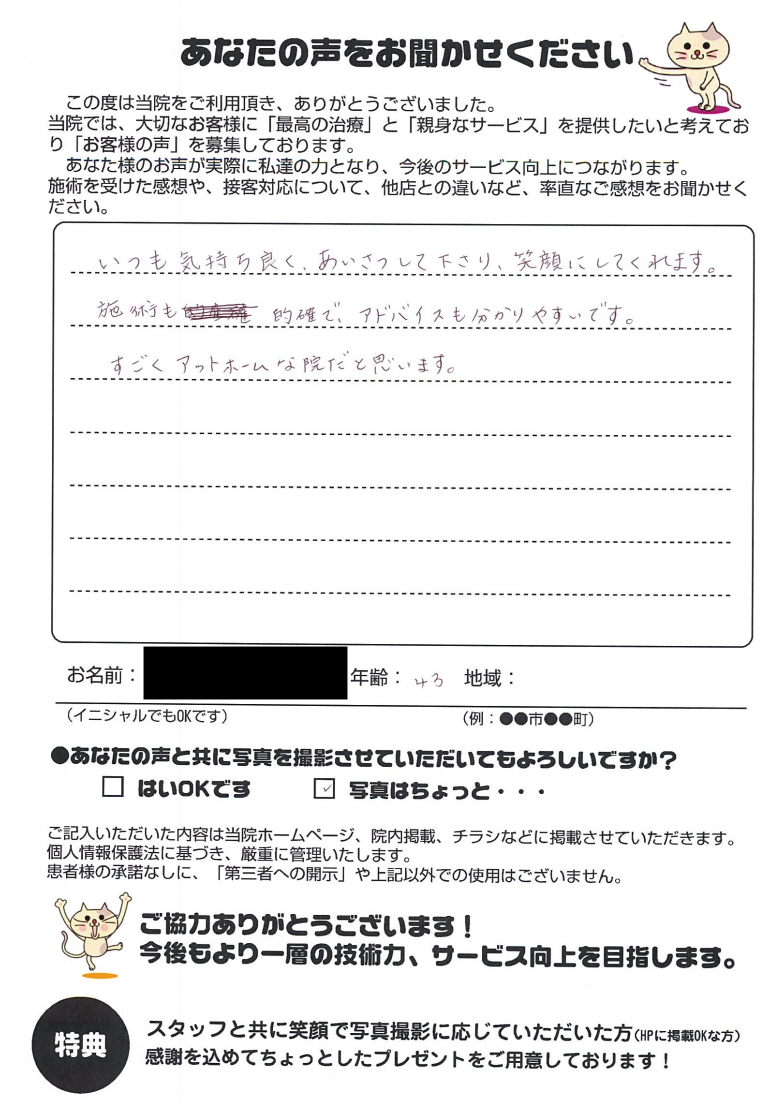 あなたの声をお聞かせください
この度は当院をご利用頂き、ありがとうございました。
当院では、大切なお客様に「最高の治療」と「親身なサービス」を提供したいと考えてお
り「お客様の声」を募集しております。
あなた様のお声が実際に私達の力となり、今後のサービス向上につながります。
施術を受けた感想や、接客対応について、他店との違いなど、率直なご感想をお聞かせく
ださい。
いつも気持ち良く、あいさつして下さり、笑顔にしてくれます。
施術も 的確で、アドバイスも分かりやすいです。
すごくアットホームな院だと思います。
お名前： 年齢： 43 地域：
（イニシャルでもOKです） （例：●●市●●町）
●あなたの声と共に写真を撮影させていただいてもよろしいですか？
□ はいOKです ☑ 写真はちょっと・・・
ご記入いただいた内容は当院ホームページ、院内掲載、チラシなどに掲載させていただきます。
個人情報保護法に基づき、厳重に管理いたします。
患者様の承諾なしに、「第三者への開示」や上記以外での使用はございません。
ご協力ありがとうございます！
今後もより一層の技術力、サービス向上を目指します。
特典
スタッフと共に笑顔で写真撮影に応じていただいた方（HPに掲載OKな方）
感謝を込めてちょっとしたプレゼントをご用意しております！